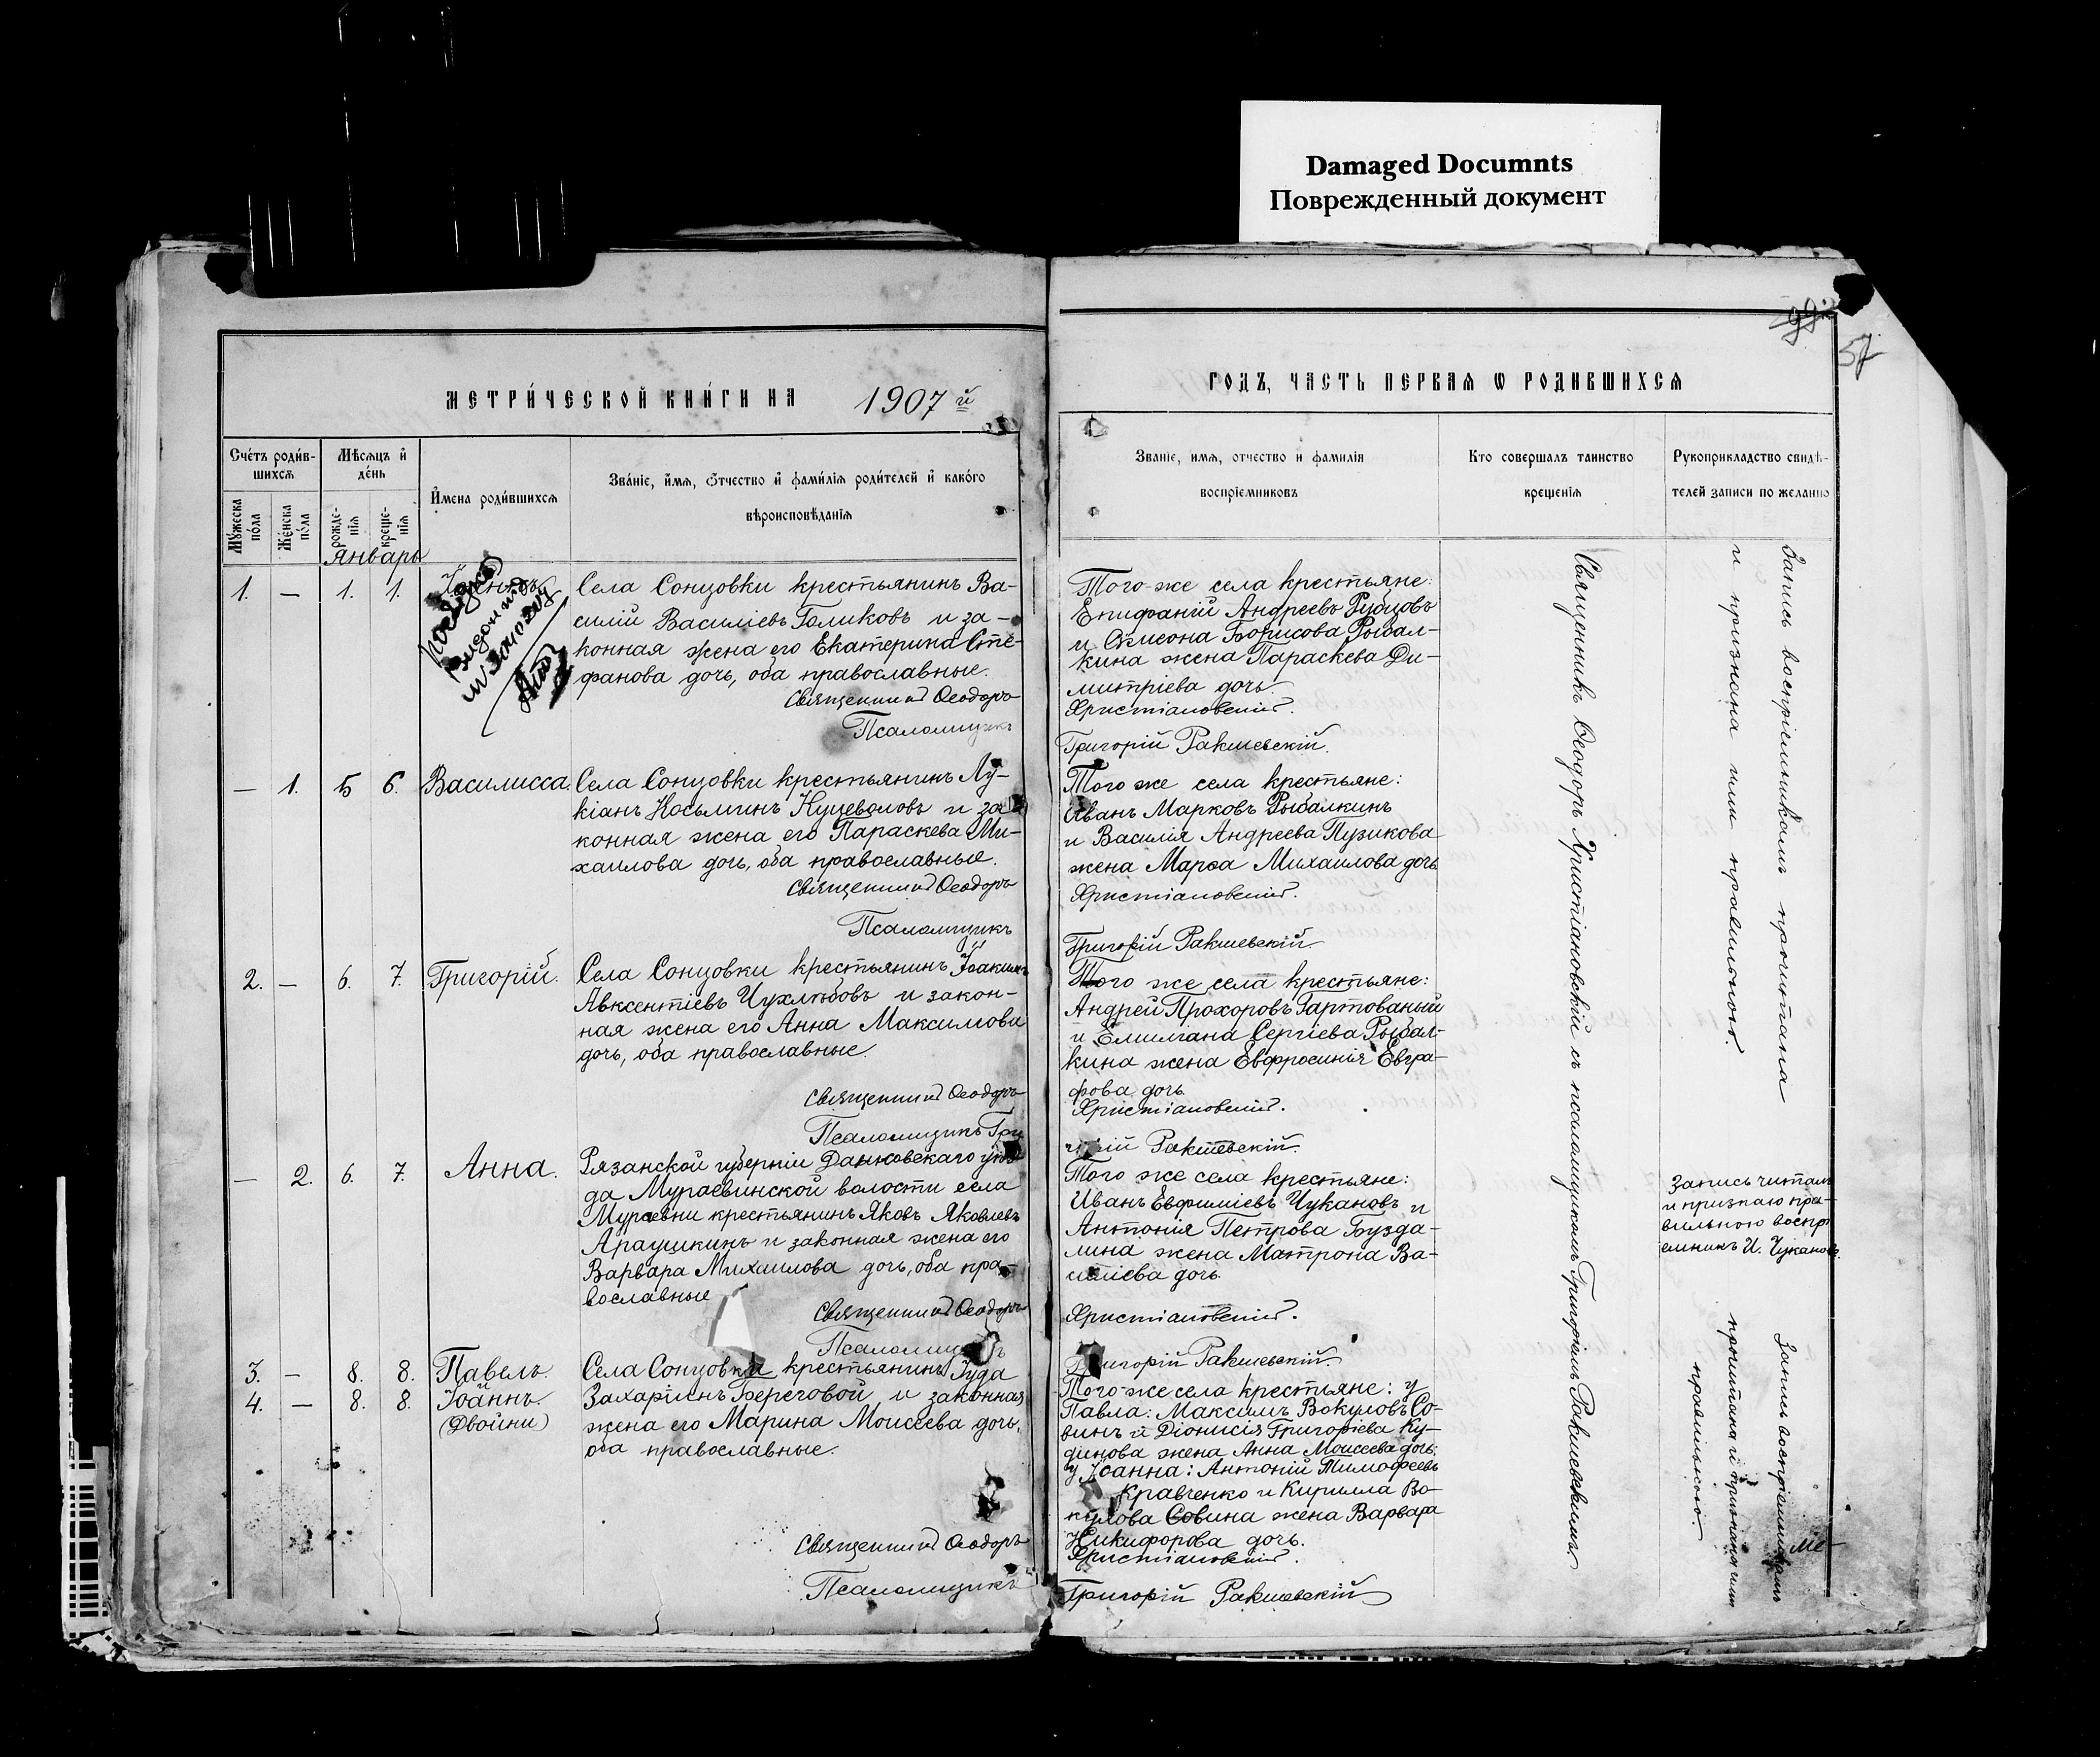 Damaged Documnts
Поврежденный документ
57
МЕТРИ́ЧЕСКОЙ КНИ́ГИ НА 1907 й
ГОДЪ, ЧАСТЬ ПЕРВАЯ Ѡ РОДИВШИХСЯ
Сче́тъ роди́в-
шихсѧ
Мꙋ́жеска по́ла
Же́нска по́ла
Мѣсѧцъ и҆ де́нь
рожде-
нїѧ
креще-
нїѧ
И҆мена роди́вшихсѧ
Зва́нїе, и҆́мѧ, ѻ҆́тчество и҆ фами́лїѧ роди́телей и҆ како́гѡ
вѣроисповѣ́данїѧ
Званїе, имѧ, отчество и фамилїѧ
воспрїемниковъ
Кто совершалъ таинство
крещенїѧ
Рукоприкладство свидѣ-
телей записи по желанию
Январь
1. — 1. 1.
Села Сонцовки крестьянинъ Ва-
силій Василіевъ Голиковъ и за-
конная жена его Екатерина Сте-
фанова дочь, оба православные.
Священникъ Ѳеодоръ
Псаломщикъ
Того-же села крестьяне:
Епифаній Андреевъ Рубцовъ
и Симеона Борисова Рыбал-
кина жена Параскева Ди-
митріева дочь.
Христіановскій.
Григорій Ракшевскій.
— 1. 5 6. Василисса.
Села Сонцовки крестьянинъ Лу-
кіанъ Косьминъ Куцеволовъ и за
конная жена его Параскева Ми-
хаилова дочь, оба православные.
Священникъ Ѳеодоръ
Псаломщикъ
Того же села крестьяне:
Иванъ Марковъ Рыбалкинъ
и Василія Андреева Пузикова
жена Марѳа Михаилова дочь
Христіановскій.
Григорій Ракшевскій
2. — 6. 7. Григорій.
Села Сонцовки крестьянинъ Іоакимъ
Авксентіевъ Чухлѣбовъ и закон-
ная жена его Анна Максимова
дочь, оба православные.
Священникъ Ѳеодоръ
Псаломщикъ Гри
Того же села крестьяне:
Андрей Прохоровъ Гартованый
и Емиліана Сергіева Рыбал-
кина жена Евфросинія Евгра-
фова дочь
Христіановскій.
Ракшевскій.
— 2. 6. 7. Анна.
Рязанской губерніи Данковскаго уѣз
да Мураевинской волости села
Мураевни крестьянинъ Яковъ Яковлевъ
Арапушкинъ и законная жена его
Варвара Михаилова дочь, оба пра-
вославные
Священникъ Ѳеодоръ
Псаломщикъ
Того же села крестьяне:
Иванъ Евфиміевъ Чукановъ и
Антонія Петрова Бузда-
лина жена Матрона Ва-
силіева дочь.
Христіановскій.
Григорій Ракшевскій.
Запись читалъ
и признаю пра-
вильною воспрі
емникъ И. Чукановъ.
3. — 8. 8. Павелъ.
4. — 8. 8. Іоаннъ.
(Двойни)
Села Сонцовки крестьянинъ Іуда
Захаріинъ Береговой и законная
жена его Марина Моисеева дочь,
оба православные.
Священникъ Ѳеодоръ
Псаломщикъ
Того-же села крестьяне: у
Павла: Максимъ Вокуловъ Со-
винъ и Діонисія Григоріева Ку-
динова жена Анна Моисеева дочь;
у Іоанна: Антоній Тимофеевъ
Кравченко и Кирилла Во-
кулова Совина жена Варвара
Никифорова дочь.
Христіановскій.
Григорій Ракшевскій
Священникъ Ѳеодоръ Христіановскій съ псаломщикомъ Григоріемъ Ракшевскимъ.
Запись воспріемникамъ прочитана
и признана ими правильною.
Запись воспріемникамъ
прочитана и признана ими
правильною.
Ме-